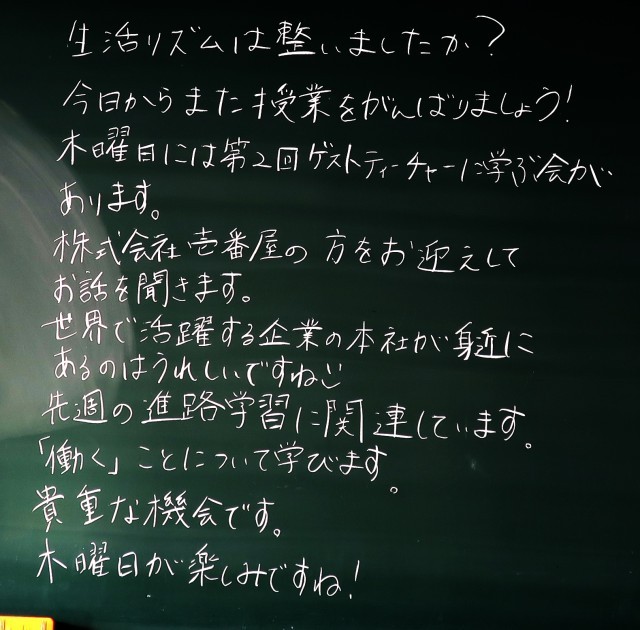 生活リズムは整いましたか?
今日からまた授業をがんばりましょう!
木曜日には第2回ゲストティーチャーに学ぶ会が
あります。
株式会社壱番屋の方をお迎えして
お話を聞きます。
世界で活躍する企業の本社が身近に
あるのはうれしいですね
先週の進路学習に関連しています。
「働く」ことについて学びます。
貴重な機会です。
木曜日が楽しみですね!